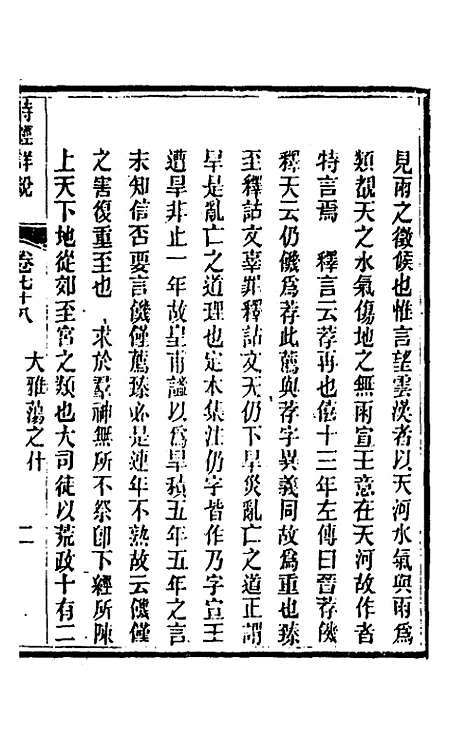 見雨之徵候也惟言望雲漢者以天河水氣與雨爲
類覩天之水氣傷地之無雨宣王意在天河故作者
特言焉　釋言云荐再也僖十三年左傳曰晉荐饑
釋天云仍饑爲荐此薦與荐字異義同故爲重也臻
至釋詁文辜罪釋詁文天仍下旱災亂亡之道正謂
旱是亂亡之道理也定本集注仍字皆作乃字宣王
遭旱非止一年故皇甫謐以爲旱積五年五年之言
未知信否要言饑饉薦臻必是連年不熟故云饑饉
之害復重至也　求於羣神無所不祭卽下經所陳
上天下地從郊至宮之類也大司徒以荒政十有二
詩經詳說
卷七十八
大雅蕩之什
二